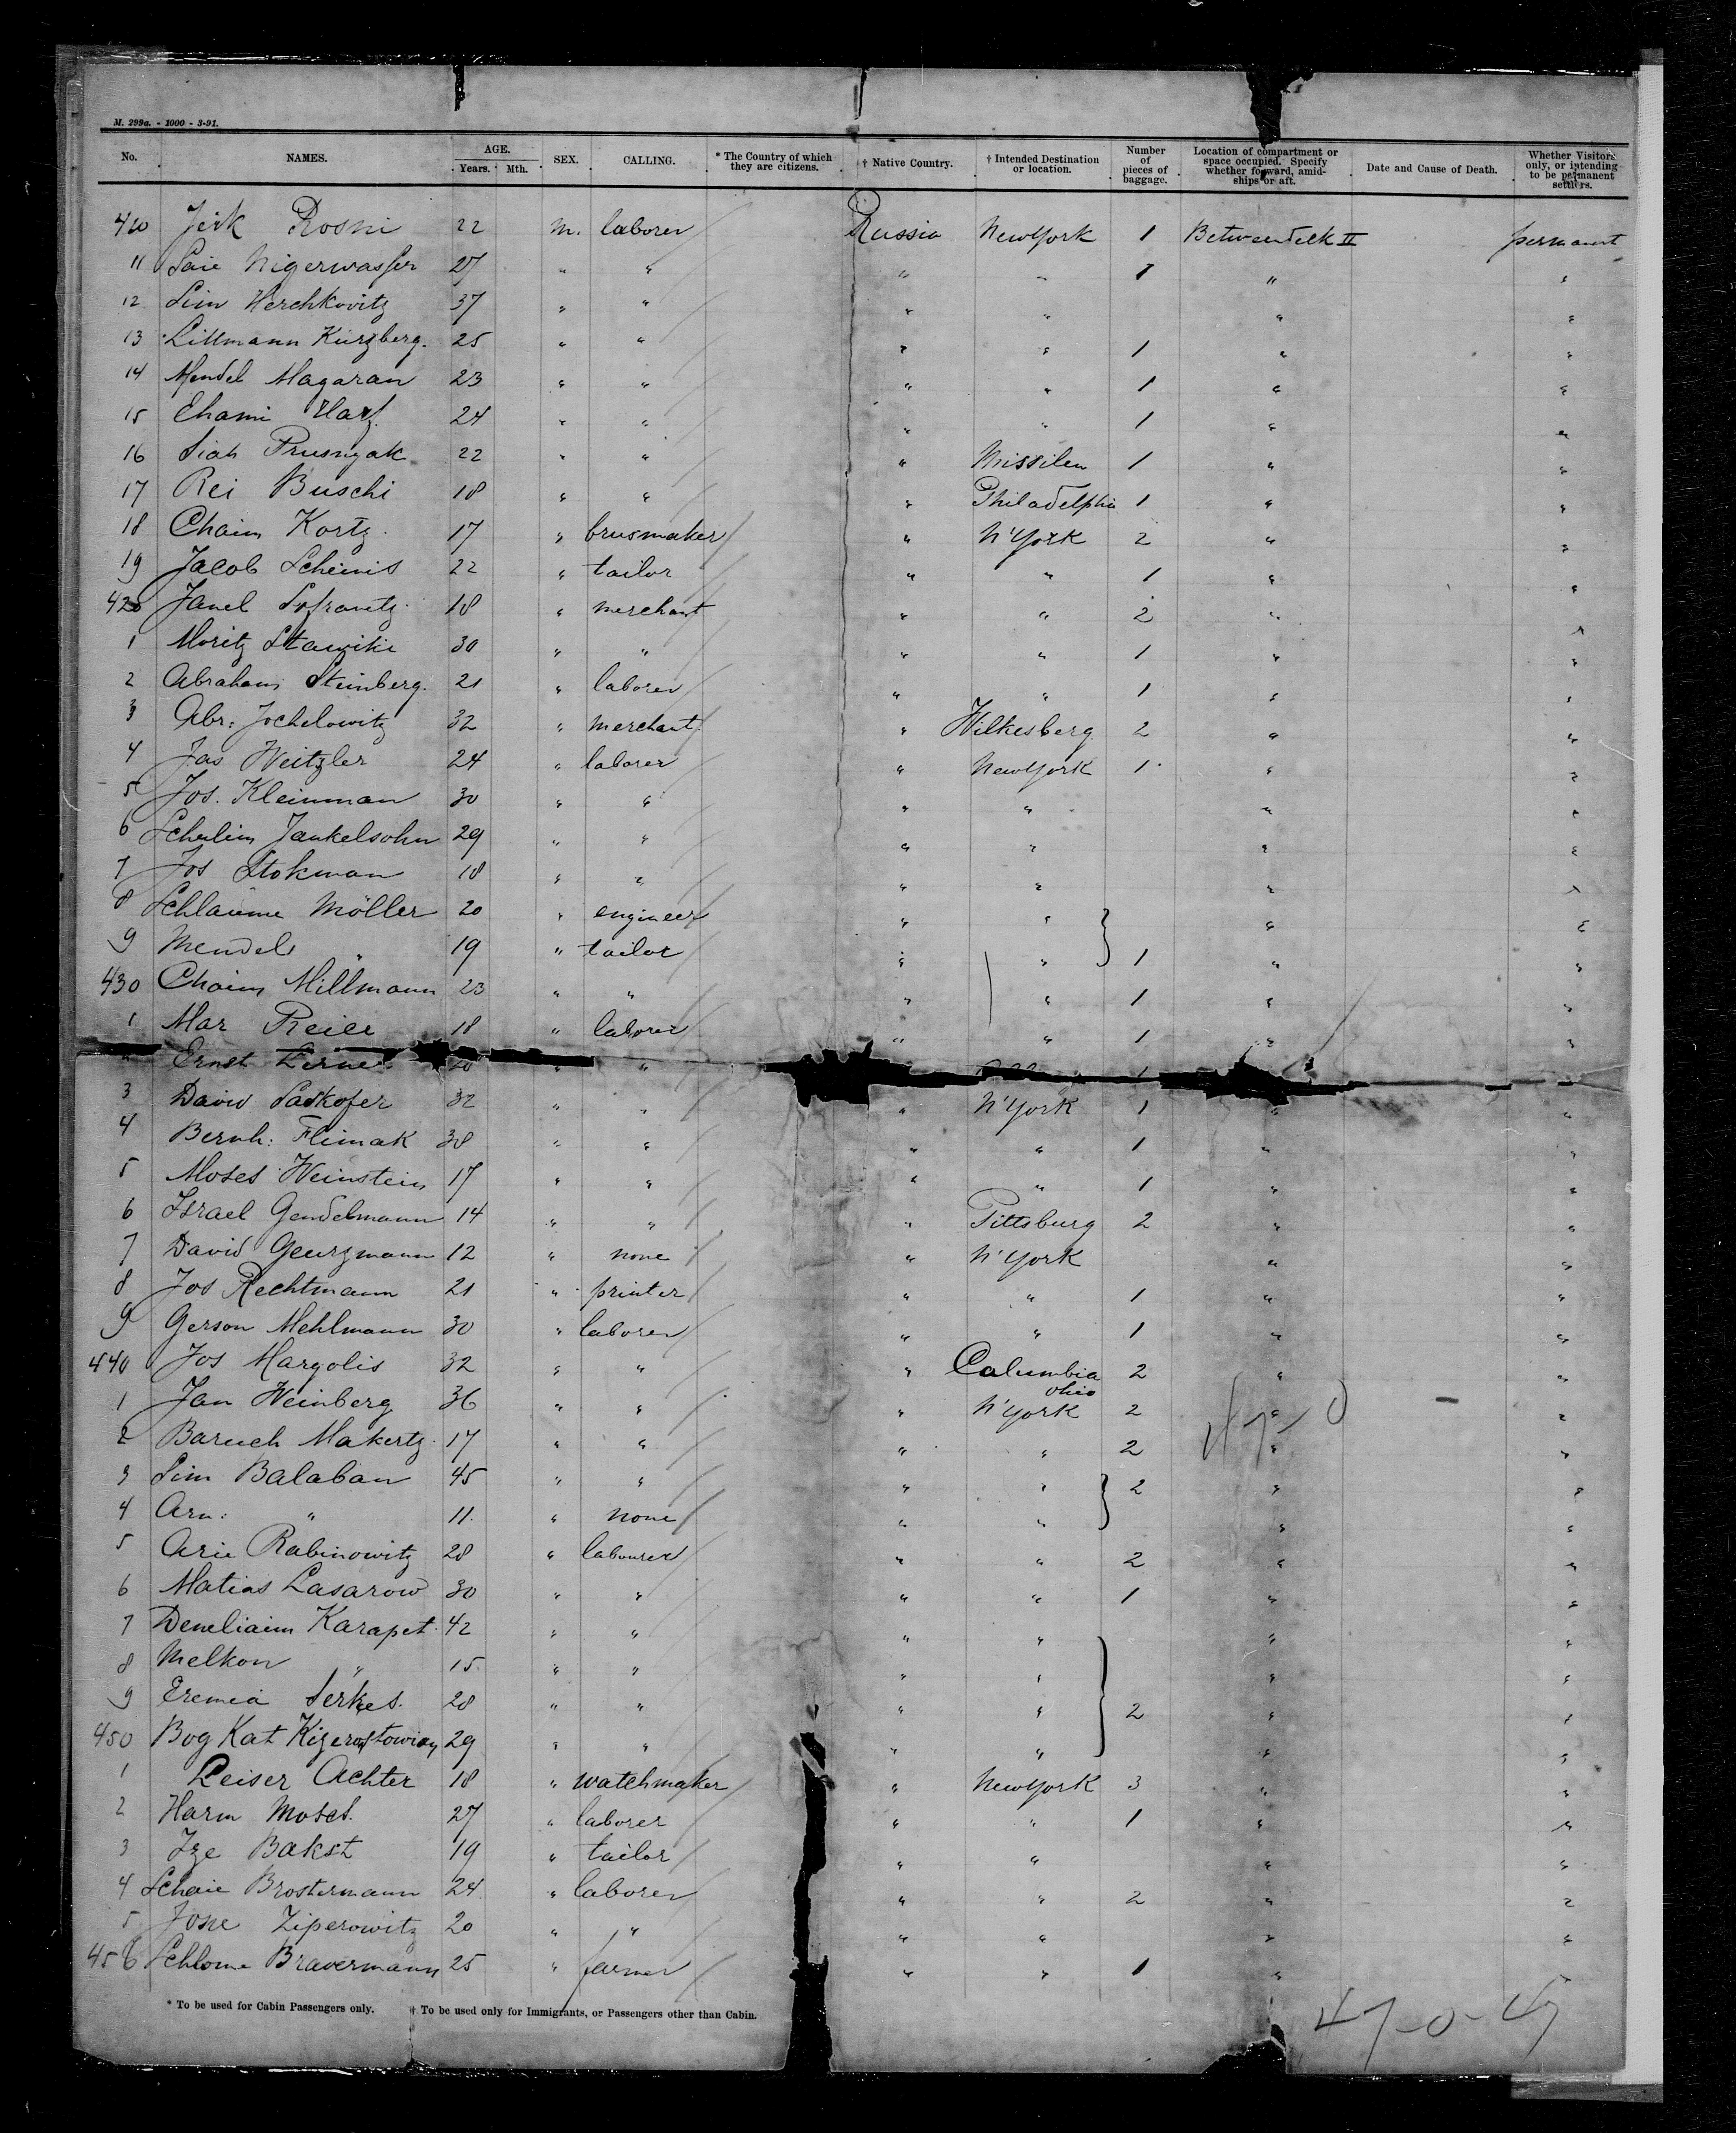 M. 299a. - 1000 - 3-91.
No. NAMES. AGE. Years. Mth. SEX. CALLING. * The Country of which they are citizens. † Native Country. † Intended Destination or location. Number of pieces of baggage. Location of compartment or space occupied. Specify whether forward, amidships or aft. Date and Cause of Death. Whether Visitors only, or intending to be permanent settlers.
410 Jerk Rosni 22 m. laborer Russia NewYork 1 Betweendeck II permanent
11 Saie Nigerwasser 27 " " " " 1 " "
12 Sim Herchkovitz 37 " " " " " "
13 Littmann Kurzberg. 25 " " " " 1 " "
14 Mendel Magaran 23 " " " " 1 " "
15 Chami 24 " " " " 1 " "
16 Siah Prusnyak 22 " " " 1 " "
17 Rei Buschi 18 " " " Philadelphia 1 " "
18 Chaim Kortz 17 " brusmaker " N'York 2 " "
19 Jacob Scheinis 22 " tailor " " 1 " "
420 Janel 18 " merchant " " 2 " "
1 Moritz Stawiki 30 " " " " 1 " "
2 Abraham Steinberg. 21 " laborer " " 1 " "
3 Abr: Jochelowitz 32 " merchant " Wilkesberg 2 " "
4 Jas Weitzler 24 " laborer " NewYork 1 " "
5 Jos. Kleinman 30 " " " " " "
6 Schulim Jankelsohn 29 " " " " " "
7 Jos Stokman 18 " " " " " "
8 Schlaume Möller 20 " engineer " " " "
9 Mendel " 19 " tailor " " 1 " "
430 Chaim Millmann 23 " " " " 1 " "
1 Mar Reier 18 " laborer " " 1 " "
Ernst " "
3 David Sadkofer 32 " " " N'York 1 " "
4 Bernh: Flimak 38 " " " " 1 " "
5 Moses Weinstein 17 " " " " 1 " "
6 Israel Gendelmann 14 " " " Pittsburg 2 " "
7 David Geurzmann 12 " none " N'York " "
8 Jos Rechtmann 21 " printer " " 1 " "
9 Gerson Mehlmann 30 " laborer " " 1 " "
440 Jos Margolis 32 " " " Columbia ohio 2 " "
1 Jan Weinberg 36 " " " N'York 2 " "
2 Baruch Makertz 17 " " " " 2 " "
3 Sim Balaban 45 " " " " 2 " "
4 Arn: " 11. " none " " " "
5 Arie Rabinowitz 28 " labourer " " 2 " "
6 Matias Lasarow 30 " " " " 1 " "
7 Deneliaim Karapet 42 " " " " " "
8 Melkon " 15 " " " " " "
9 Eremia Serkes. 28 " " " " 2 " "
450 Bog Kat 29 " " " " " "
1 Leiser Achter 18 " watchmaker " NewYork 3 " "
2 Harm Moses. 27 " laborer " " 1 " "
3 Ize Bakst 19 " tailor " " " "
4 Schaie Brostermann 24 " laborer " " 2 " "
5 Jone Ziperowitz 20 " " " " " "
456 Schlome Bravermann 25 " farmer " " 1 " "
* To be used for Cabin Passengers only. † To be used only for Immigrants, or Passengers other than Cabin.
47-0-47